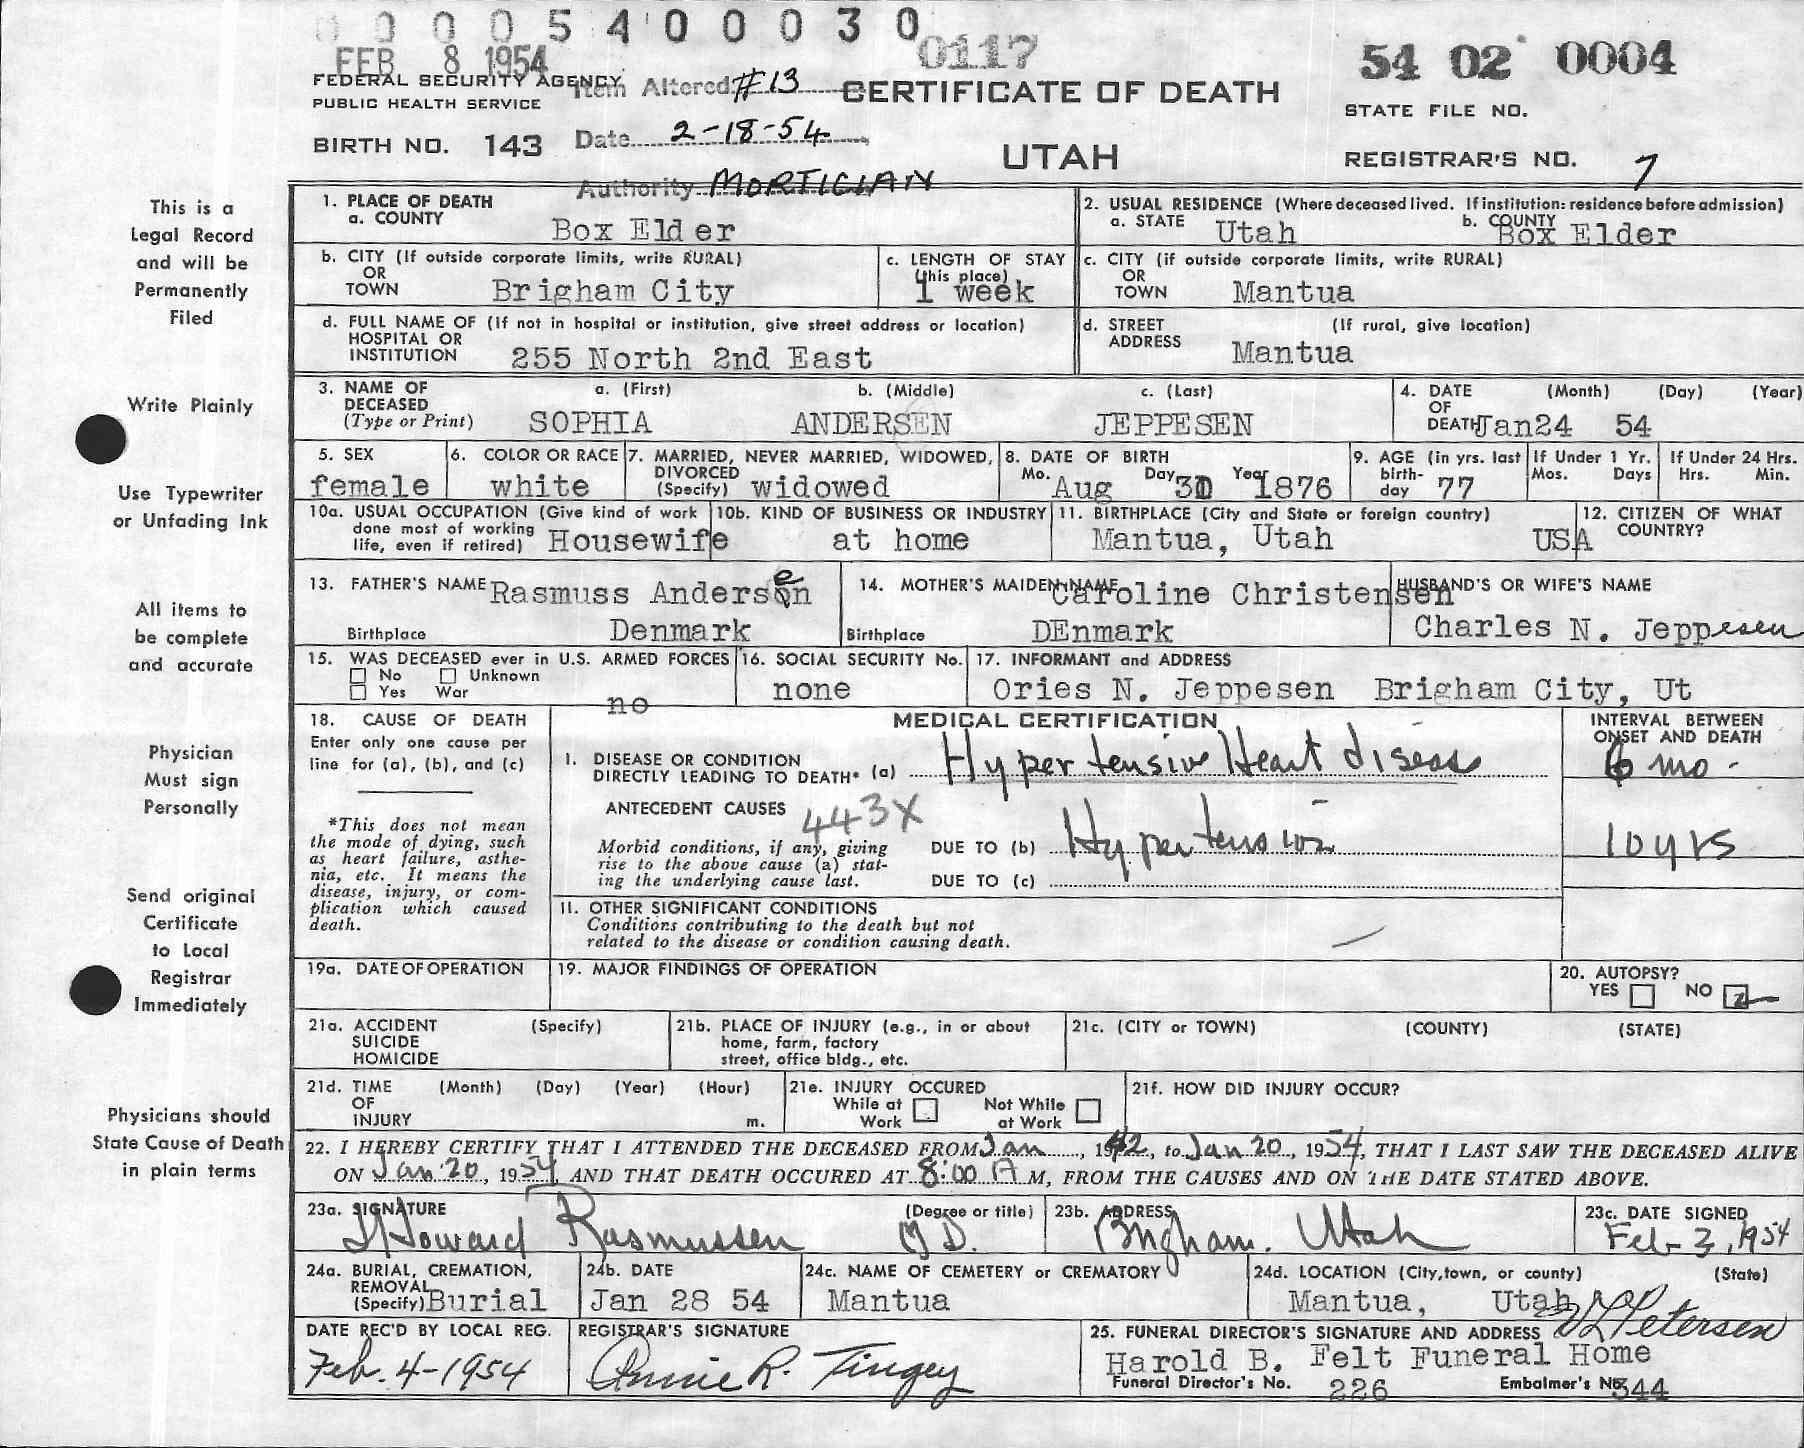 0 0 0 0 5 4 0 0 0 3 0
FEB 8 1954
0117
54 02 0004
FEDERAL SECURITY AGENCY
PUBLIC HEALTH SERVICE
Item Altered #13
CERTIFICATE OF DEATH
STATE FILE NO.
BIRTH NO. 143
Date 2-18-54
UTAH
REGISTRAR'S NO. 7
Authority MORTICIAN
This is a
Legal Record
and will be
Permanently
Filed
Write Plainly
Use Typewriter
or Unfading Ink
All items to
be complete
and accurate
Physician
Must sign
Personally
Send original
Certificate
to Local
Registrar
Immediately
Physicians should
State Cause of Death
in plain terms
1. PLACE OF DEATH
a. COUNTY
Box Elder
2. USUAL RESIDENCE (Where deceased lived. If institution: residence before admission)
a. STATE Utah b. COUNTY Box Elder
b. CITY (If outside corporate limits, write RURAL)
OR
TOWN Brigham City
c. LENGTH OF STAY
(this place)
1 week
c. CITY (if outside corporate limits, write RURAL)
OR
TOWN Mantua
d. FULL NAME OF (If not in hospital or institution, give street address or location)
HOSPITAL OR
INSTITUTION 255 North 2nd East
d. STREET (If rural, give location)
ADDRESS Mantua
3. NAME OF
DECEASED
(Type or Print)
a. (First) b. (Middle) c. (Last)
SOPHIA ANDERSEN JEPPESEN
4. DATE (Month) (Day) (Year)
OF
DEATH Jan24 54
5. SEX
female
6. COLOR OR RACE
white
7. MARRIED, NEVER MARRIED, WIDOWED,
DIVORCED
(Specify) widowed
8. DATE OF BIRTH
Mo. Aug Day 30 Year 1876
9. AGE (in yrs. last
birth-
day 77
If Under 1 Yr.
Mos. Days
If Under 24 Hrs.
Hrs. Min.
10a. USUAL OCCUPATION (Give kind of work
done most of working
life, even if retired) Housewife
10b. KIND OF BUSINESS OR INDUSTRY
at home
11. BIRTHPLACE (City and State or foreign country)
Mantua, Utah
12. CITIZEN OF WHAT
COUNTRY?
USA
13. FATHER'S NAME Rasmuss Andersen
Birthplace Denmark
14. MOTHER'S MAIDEN NAME Caroline Christensen
Birthplace DEnmark
HUSBAND'S OR WIFE'S NAME
Charles N. Jeppesen
15. WAS DECEASED ever in U.S. ARMED FORCES
No Unknown
Yes War
no
16. SOCIAL SECURITY No.
none
17. INFORMANT and ADDRESS
Ories N. Jeppesen Brigham City, Ut
18. CAUSE OF DEATH
Enter only one cause per
line for (a), (b), and (c)
*This does not mean
the mode of dying, such
as heart failure, asthe-
nia, etc. It means the
disease, injury, or com-
plication which caused
death.
MEDICAL CERTIFICATION
I. DISEASE OR CONDITION
DIRECTLY LEADING TO DEATH* (a) Hypertensive Heart disease
ANTECEDENT CAUSES 443X
Morbid conditions, if any, giving
rise to the above cause (a) stat-
ing the underlying cause last.
DUE TO (b) Hypertension
DUE TO (c)
INTERVAL BETWEEN
ONSET AND DEATH
6 mo.
10 yrs
II. OTHER SIGNIFICANT CONDITIONS
Conditions contributing to the death but not
related to the disease or condition causing death.
19a. DATE OF OPERATION
19. MAJOR FINDINGS OF OPERATION
20. AUTOPSY?
YES NO
21a. ACCIDENT (Specify)
SUICIDE
HOMICIDE
21b. PLACE OF INJURY (e.g., in or about
home, farm, factory
street, office bldg., etc.
21c. (CITY or TOWN) (COUNTY) (STATE)
21d. TIME (Month) (Day) (Year) (Hour)
OF
INJURY m.
21e. INJURY OCCURED
While at Work Not While at Work
21f. HOW DID INJURY OCCUR?
22. I HEREBY CERTIFY THAT I ATTENDED THE DECEASED FROM Jan, 1942, to Jan 20, 1954, THAT I LAST SAW THE DECEASED ALIVE
ON Jan 20, 1954, AND THAT DEATH OCCURED AT 8:00 A M, FROM THE CAUSES AND ON THE DATE STATED ABOVE.
23a. SIGNATURE (Degree or title)
Howard Rasmussen M D.
23b. ADDRESS
Brigham, Utah
23c. DATE SIGNED
Feb 3, 1954
24a. BURIAL, CREMATION,
REMOVAL
(Specify) Burial
24b. DATE
Jan 28 54
24c. NAME OF CEMETERY or CREMATORY
Mantua
24d. LOCATION (City, town, or county) (State)
Mantua, Utah
DATE REC'D BY LOCAL REG.
Feb. 4-1954
REGISTRAR'S SIGNATURE
Annie R. Tingey
25. FUNERAL DIRECTOR'S SIGNATURE AND ADDRESS Petersen
Harold B. Felt Funeral Home
Funeral Director's No. 226 Embalmer's No. 344